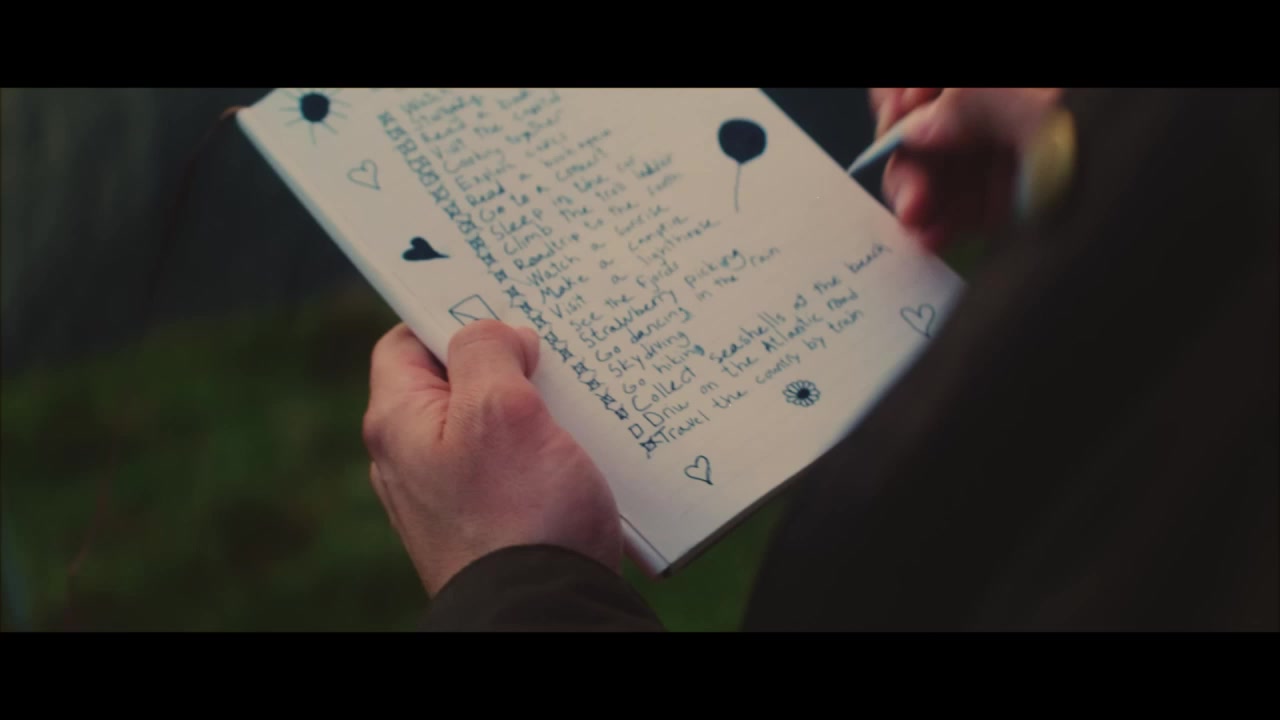 Watch
Read a book
Visit the
Cooking together
Explore
Read a book again
Go to a concert
Sleep in the car
Climb the troll ladder
Roadtrip to the north
Watch a sunrise
Make a campfire
Visit a lighthouse
See the fjords
Strawberry picking
Go dancing in the rain
Skydiving
Go hiking
Collect seashells at the beach
Drive on the Atlantic road
Travel the country by train